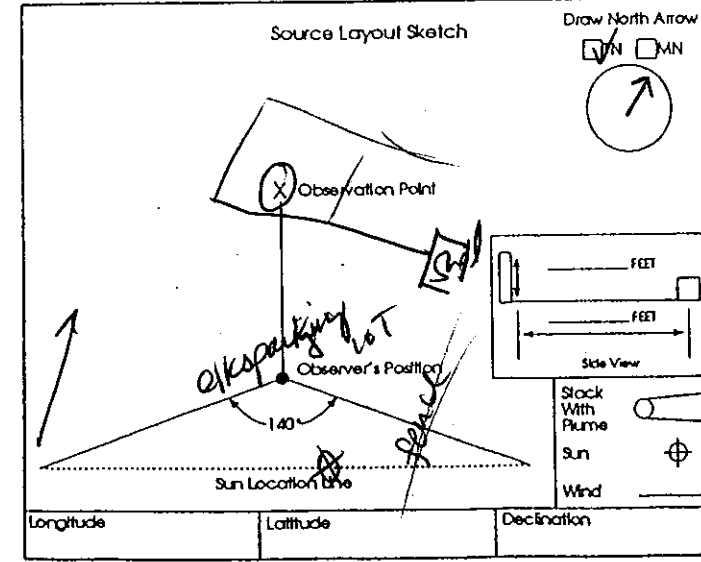 Source Layout Sketch
Draw North Arrow
TN MN
X Observation Point
Shed
FEET
FEET
Side View
elksparking LOT
Observer's Position
140°
fence
Sun Location Line
Stack With Plume
Sun
Wind
Longitude
Latitude
Declination